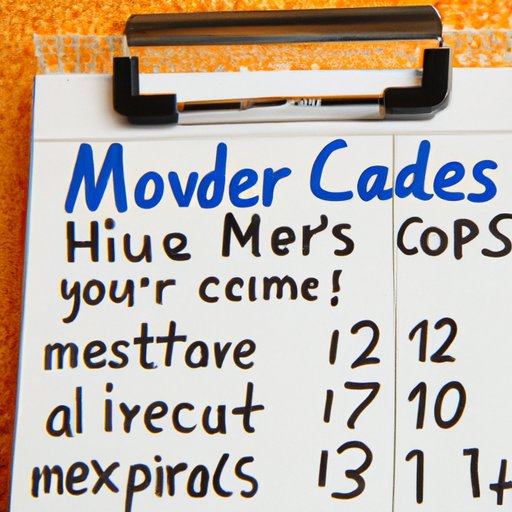 Movder Cades
Hiue Mer's COPS
your'r ccıme!
mesttave 12 12
alivecut 17 10
mexpirocs 13 1